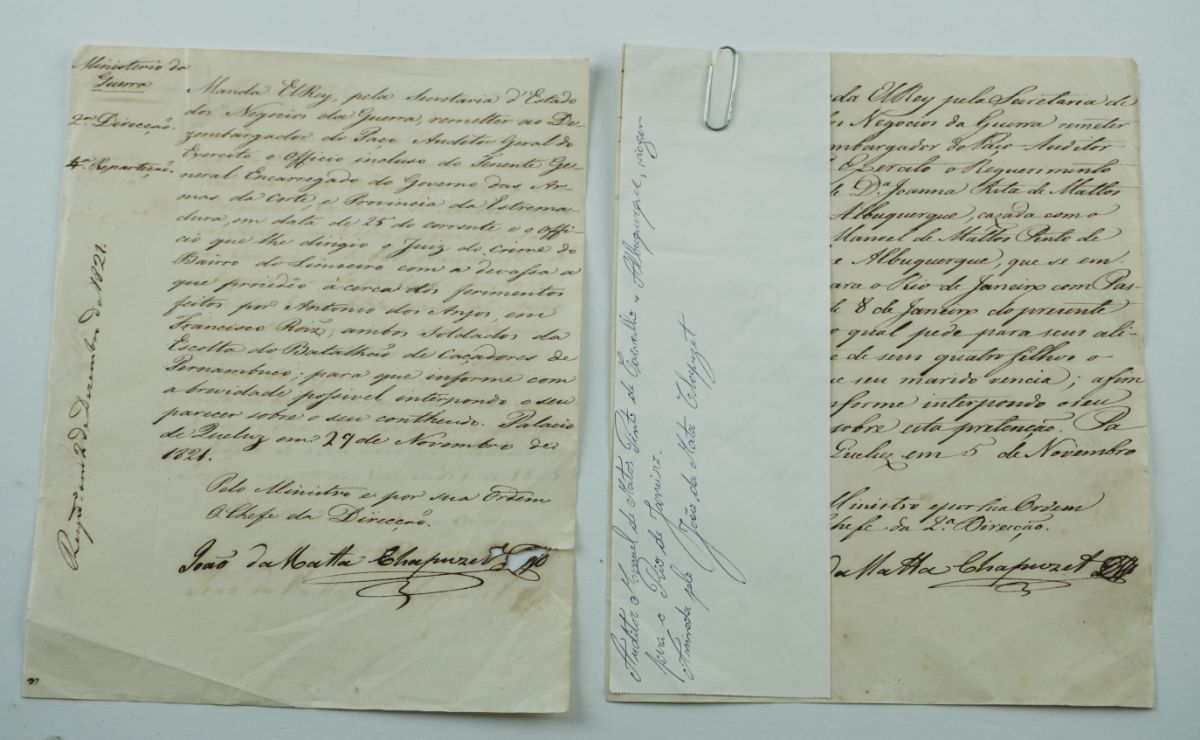 Ministerio da
Guerra
2ª Direcção.
4ª Repartição.
Manda ElRey, pela Secretaria d'Estado
dos Negocios da Guerra, remetter ao De-
zembargador do Paço Auditor Geral do
Exercito o Officio incluso do Tenente Ge-
neral Encarregado do Governo das Ar-
mas da Corte, e Provincia da Estrema-
dura, em data de 25 do corrente e o Offi-
cio que lhe dirigio o Juiz do Crime do
Bairro do Limoeiro com a devassa a
que procedêo à cerca dos ferimentos
feitos por Antonio dos Anjos, em
Francisco Roiz, ambos Soldados da
Escolta do Batalhaõ de Caçadores de
Pernambuco; para que informe com
a brevidade possivel interpondo o seu
parecer sobre o seu contheudo. Palacio
de Queluz em 27 de Novembro de
1821.
Pelo Ministro e por sua Ordem
O Chefe da Direcção.
João da Matta Chapuzet
em 2 de Dezembro de 1821.
Auditor Manuel de Matos Pinto de Carvalho e Albuquerque, viagem
para o Rio de Janeiro.
Assinada pelo João da Mata Chapuzet
da ElRey pela Secretaria de
os Negocios da Guerra remeter
mbargador do Paço Auditor
Exercito o Requerimento
de D.ª Joanna Rita de Mattos
Albuquerque, cazada com o
Manuel de Mattos Pinto de
e Albuquerque, que se em-
ara o Rio de Janeiro com Pas-
de 8 de Janeiro do presente
o qual pede para seus ali-
e de seus quatro filhos o
ue seu marido vencia; afim
nforme interpondo o seu
sobre esta pretenção. Pa
Queluz em 5 de Novembro
Ministro e por sua Ordem
Chefe da 2.ª Direcção.
da Matta Chapuzet